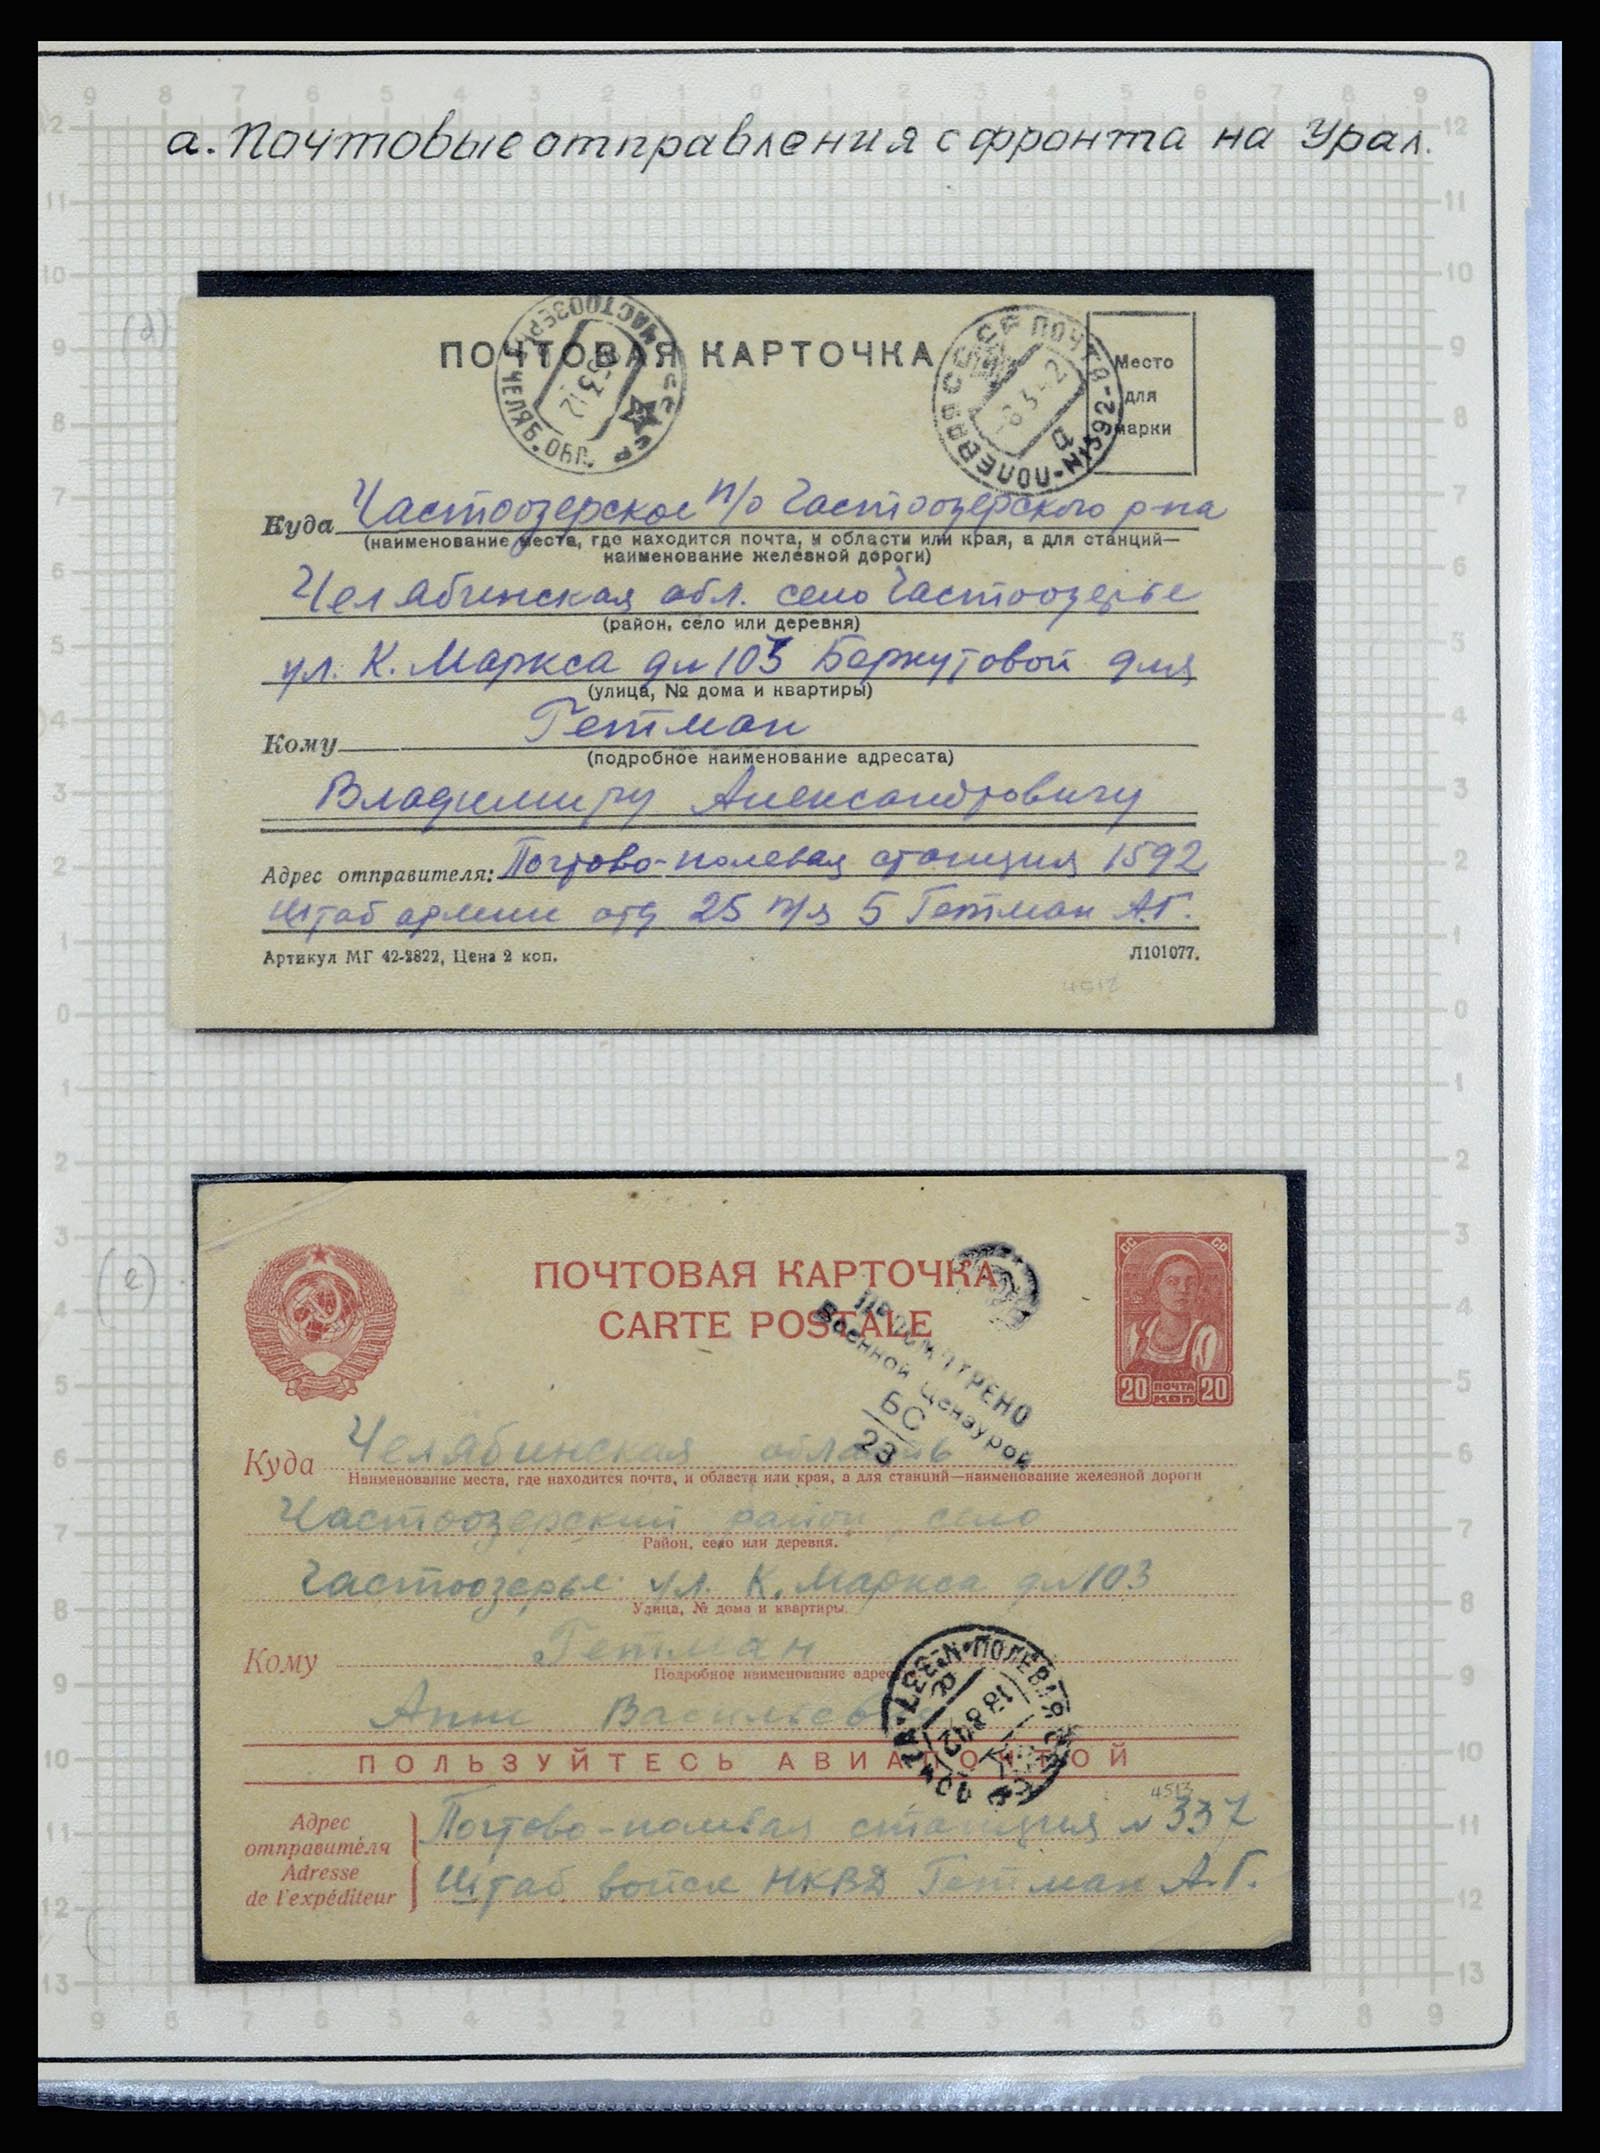 а. Почтовые отправления с фронта на Урал.
(д)
ПОЧТОВАЯ КАРТОЧКА
Место
для
марки
Куда Частоозерское п/о Частоозерского р-на
(наименование места, где находится почта, и области или края, а для станций—
наименование железной дороги)
Челябинская обл. село Частоозерье
(район, село или деревня)
ул. К. Маркса д № 103 Беркутовой для
(улица, № дома и квартиры)
Кому Гетман
(подробное наименование адресата)
Владимиру Александровичу
Адрес отправителя: Почтово-полевая станция 1592
Штаб армии отд 25 п/я 5 Гетман А.Г.
Артикул МГ 42-2822, Цена 2 коп. Л101077.
4512
(е)
ПОЧТОВАЯ КАРТОЧКА
CARTE POSTALE
СС СР
20 ПОЧТА КОП 20
ПРОСМОТРЕНО
Военной Цензурой
БС
23
Куда Челябинская область
Наименование места, где находится почта, и области или края, а для станций—наименование железной дороги
Частоозерский район, село
Район, село или деревня.
Частоозерье ул. К. Маркса д № 103
Улица, № дома и квартиры.
Кому Гетман
Подробное наименование адрес
Анне Васильевне
ПОЛЬЗУЙТЕСЬ АВИАПОЧТОЙ
4513
Адрес
отправителя
Adresse
de l'expéditeur
Почтово-полевая станция № 337
Штаб войск НКВД Гетман А.Г.